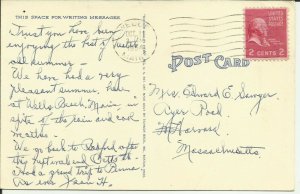 THIS SPACE FOR WRITING MESSAGES
Trust you have been
enjoying the best of health
all summer.
We have had a very
pleasant summer here
at Wells Beach, Maine, in
spite of the rain and cool
weather.
We go back to Bedford after
the
Had a grand trip to
POST CARD
UNITED STATES POSTAGE
2 CENTS 2
Mrs. Edward E. Sawyer
Ayer Road
Harvard
Massachusetts